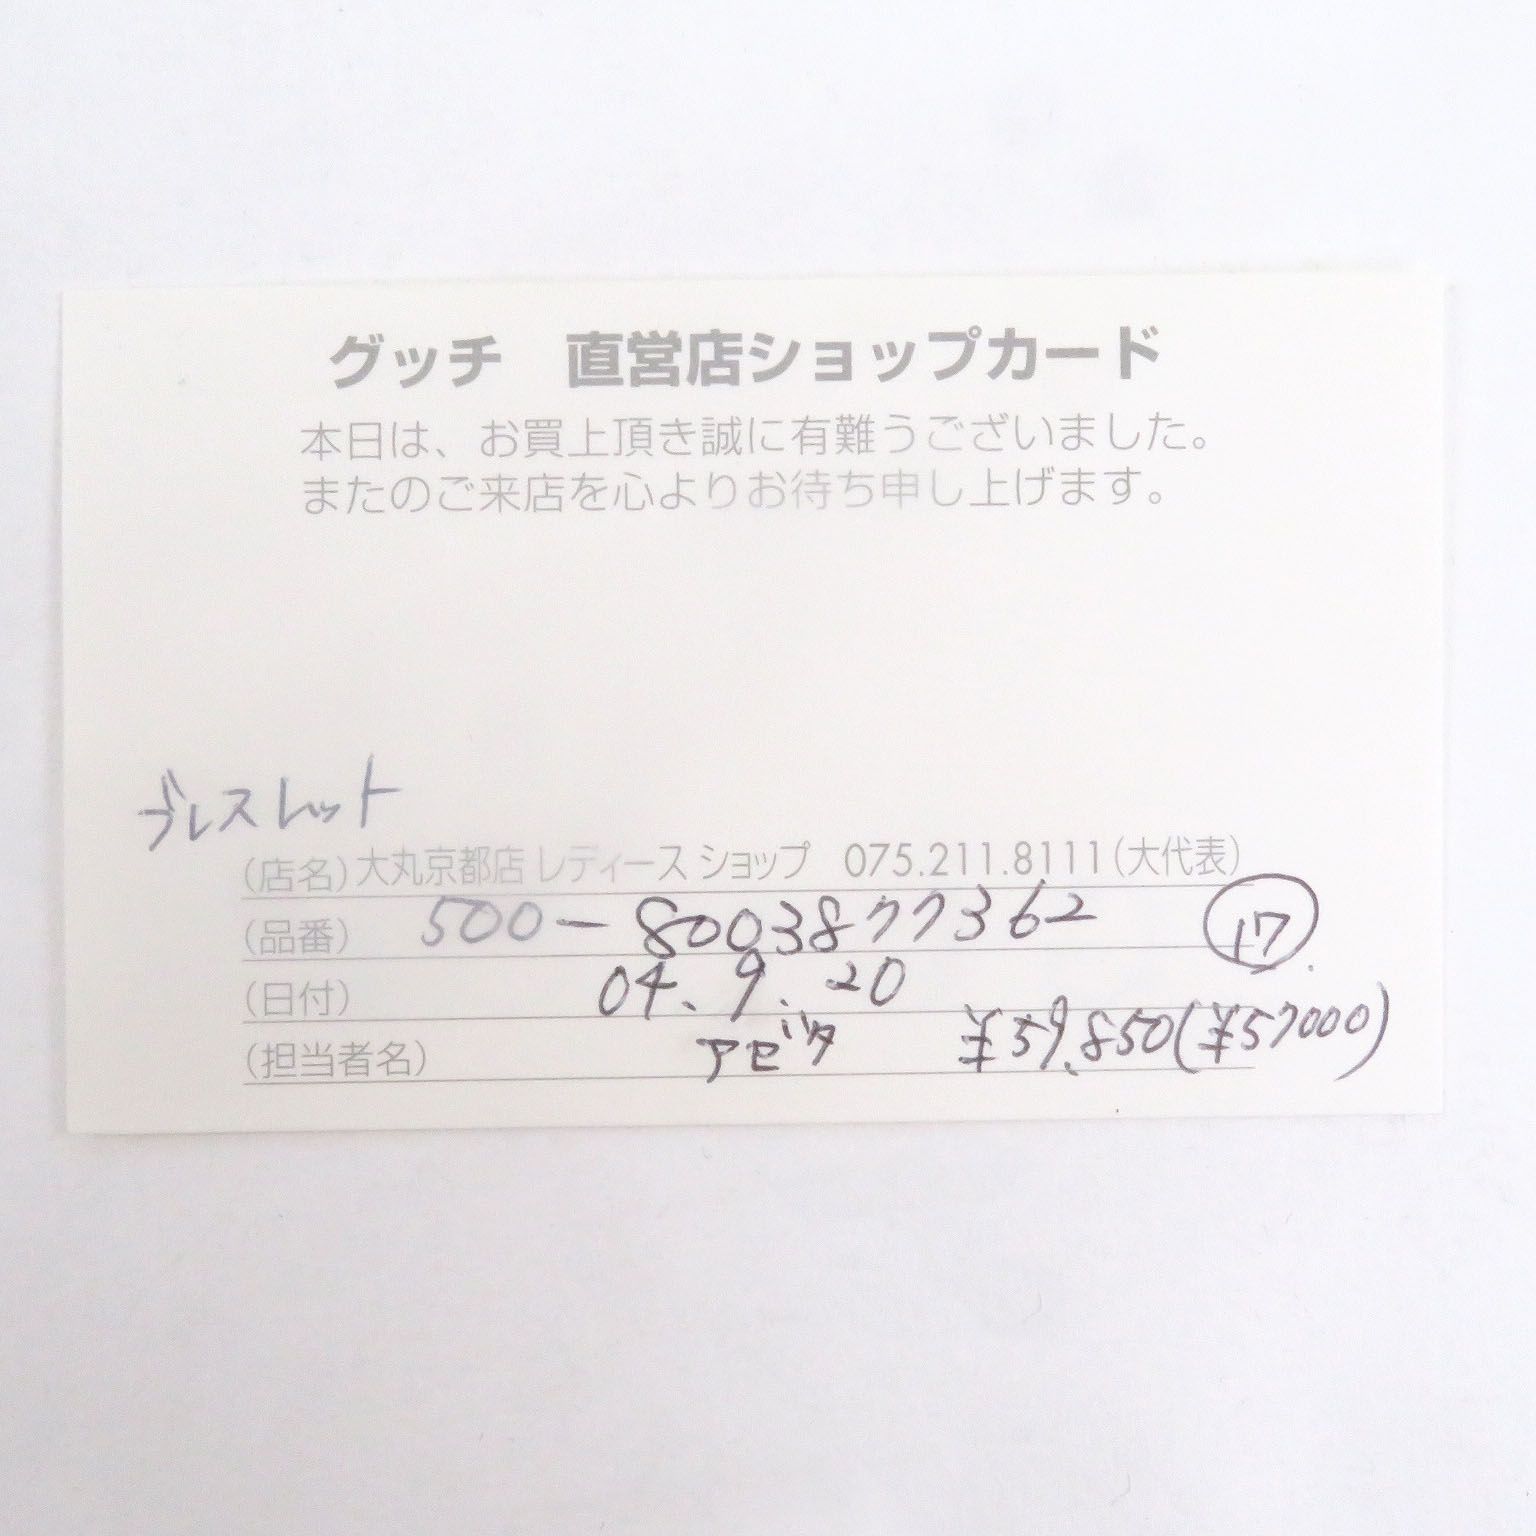 グッチ 直営店ショップカード
本日は、お買上頂き誠に有難うございました。
またのご来店を心よりお待ち申し上げます。
ブレスレット
(店名)大丸京都店 レディース ショップ 075.211.8111(大代表)
(品番) 500-8003877362 17
(日付) 04.9.20
(担当者名) ¥59.850(¥57000)